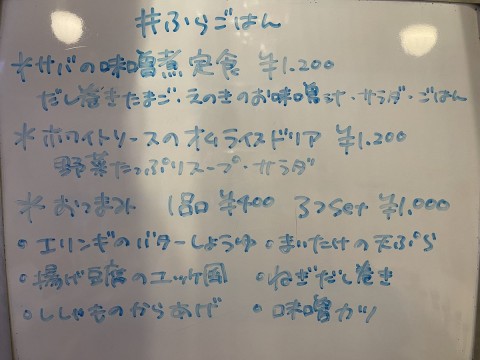 #ふらごはん
*サバの味噌煮定食 ¥1.200
だし巻きたまご・えのきのお味噌汁・サラダ・ごはん
*ホワイトソースのオムライスドリア ¥1.200
野菜たっぷりスープ・サラダ
*おつまみ 1品¥400 3つset ¥1.000
・エリンギのバターしょうゆ ・まいたけの天ぷら
・揚げ豆腐のユッケ風 ・ねぎだし巻き
・ししゃものからあげ ・味噌カツ